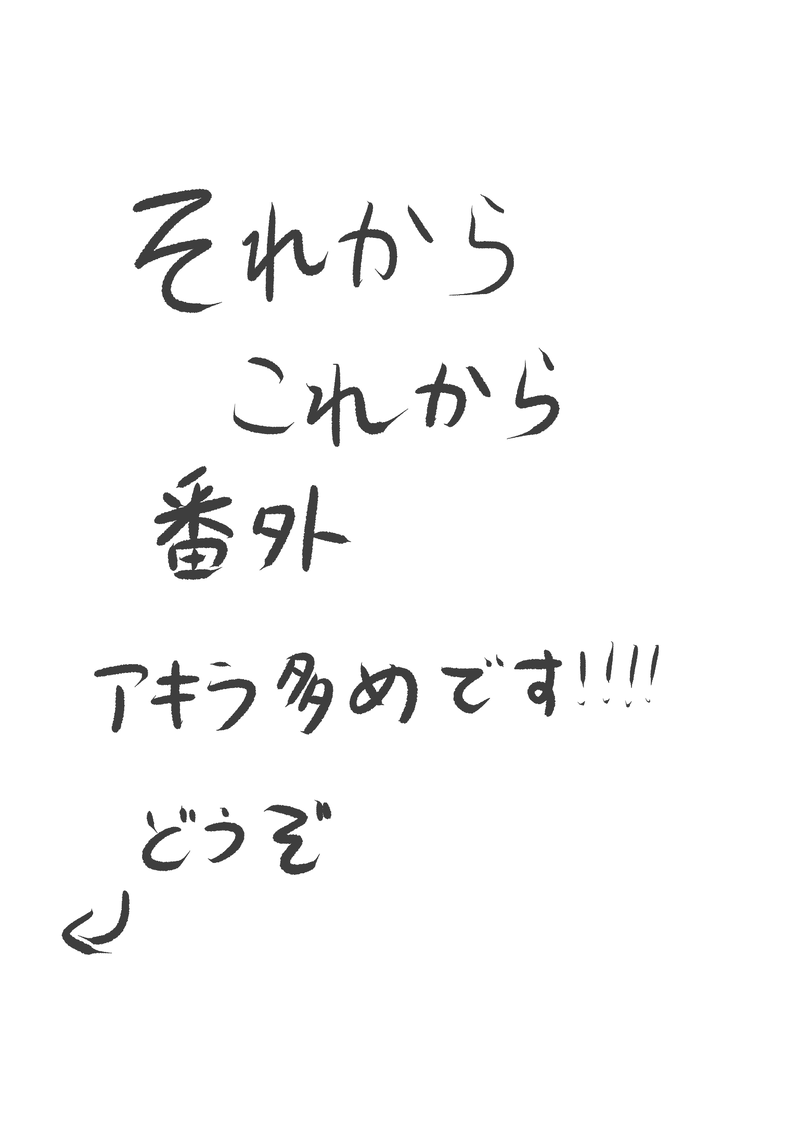 それから
これから
番外
アキラ多めです!!!!
どうぞ